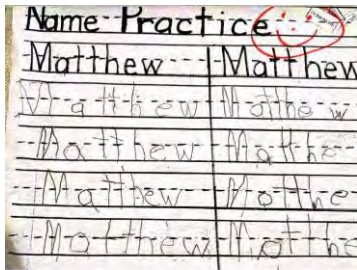 Name Practice
Matthew Matthew
Matthew Mathew
Matthew Matthe
Matthew Motthe
Motthew Motthe